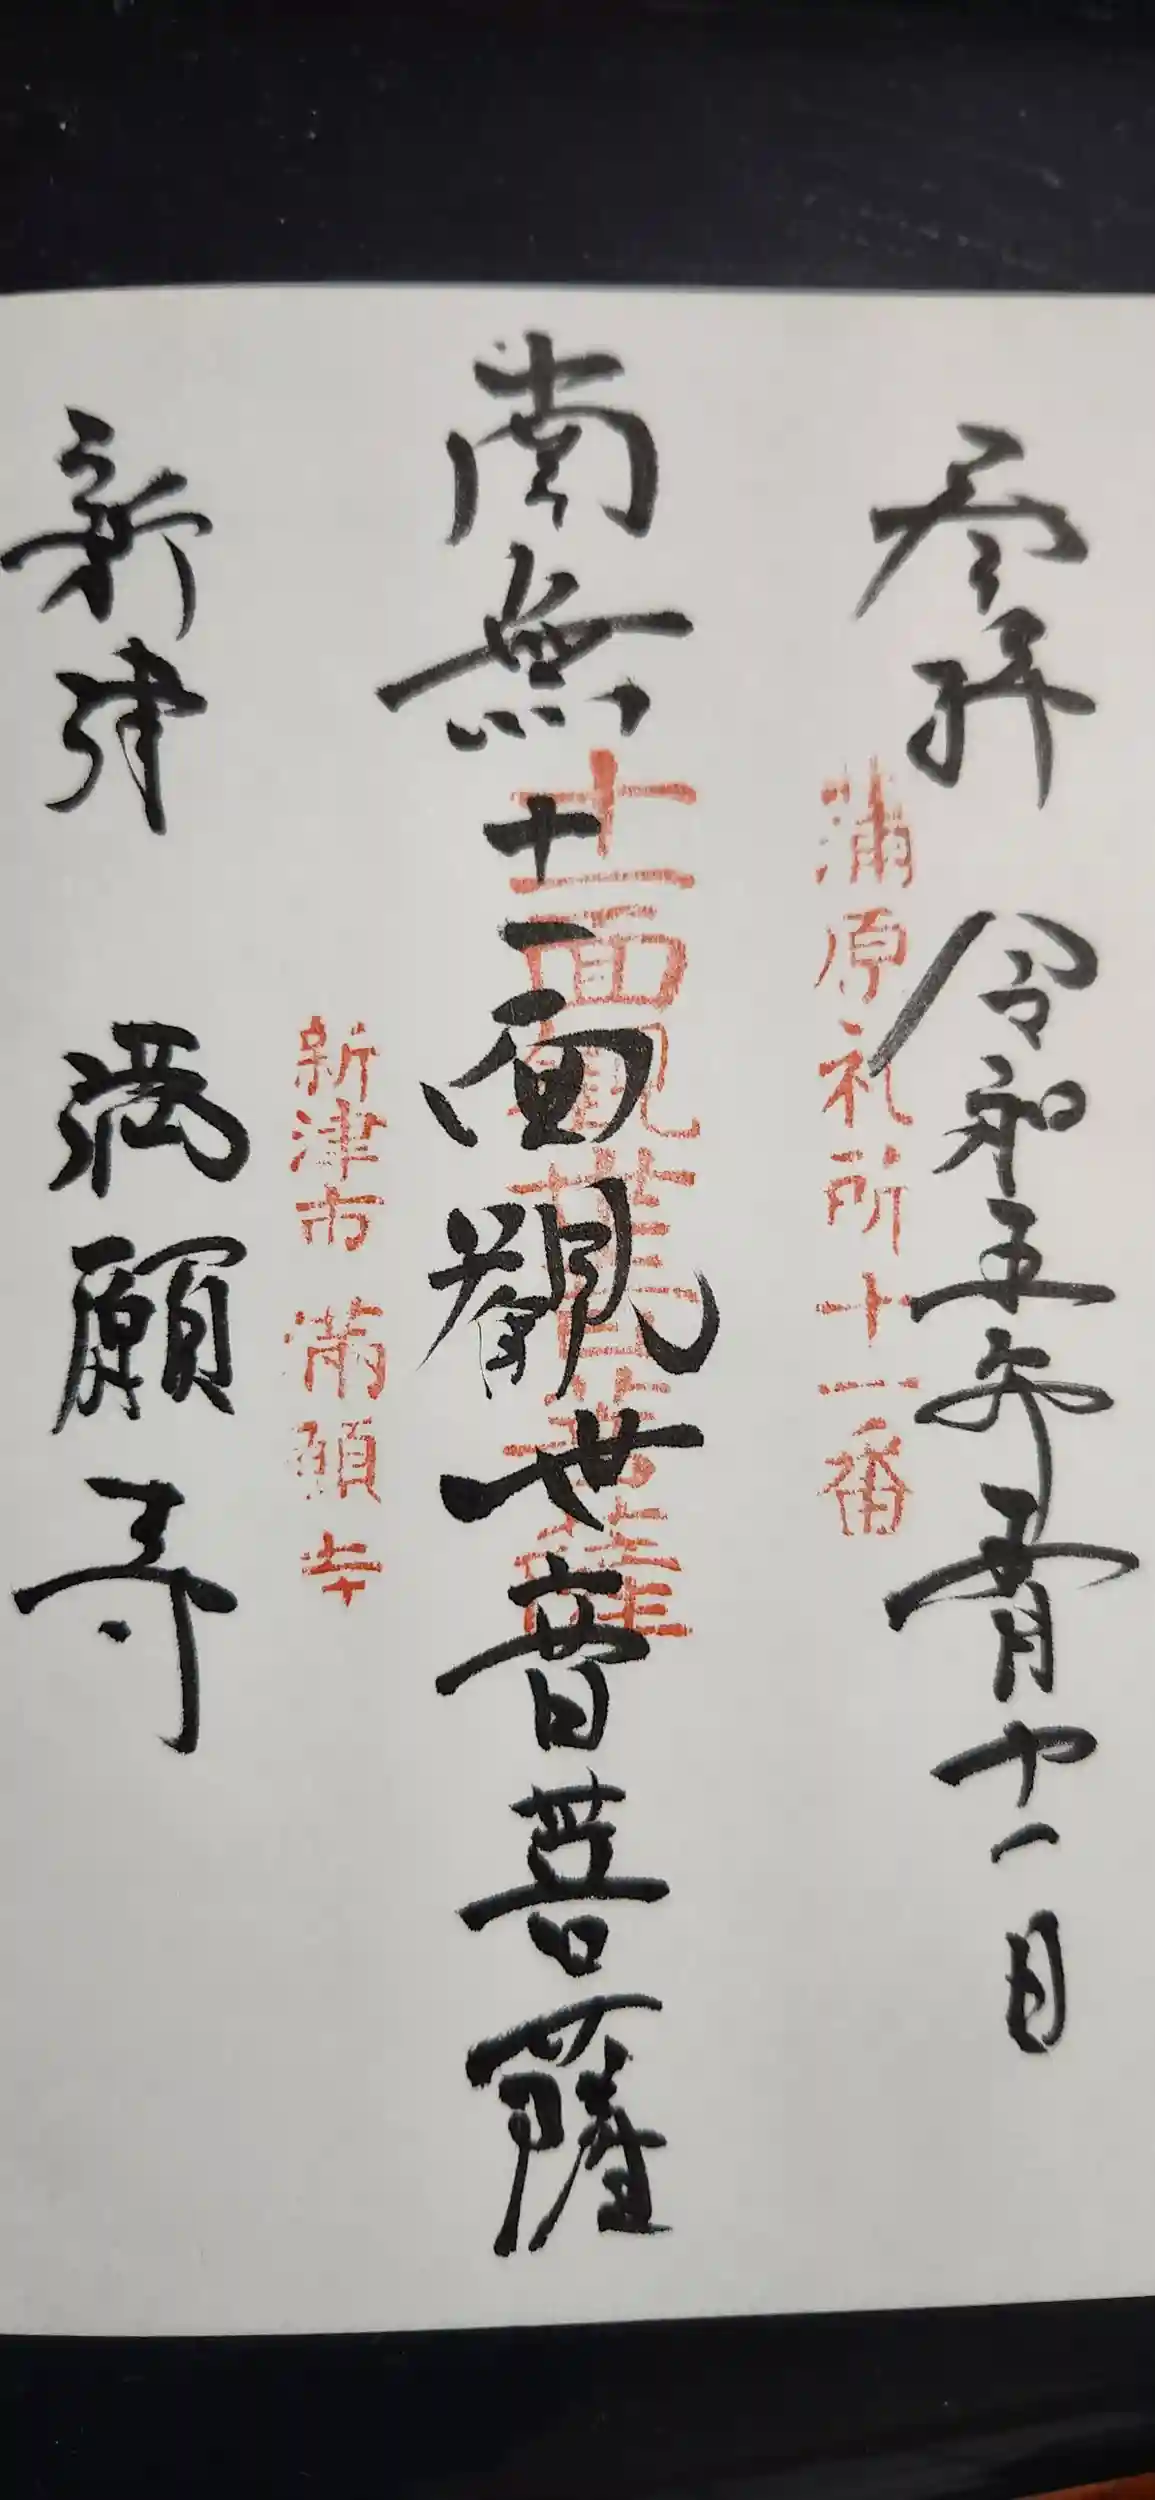 参拝 令和五年五月十一日
蒲原礼所十一番
南無十一面觀世音菩薩
十一面観世音菩薩
新津市 満願寺
新津 満願寺